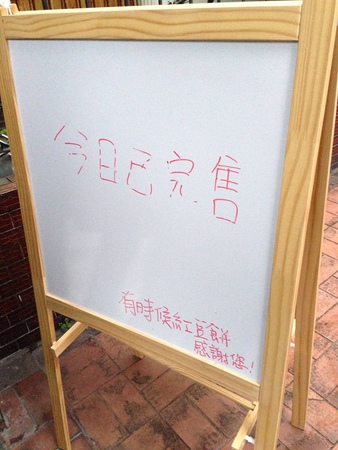 今日已完售
有時候紅豆餅
感謝您!